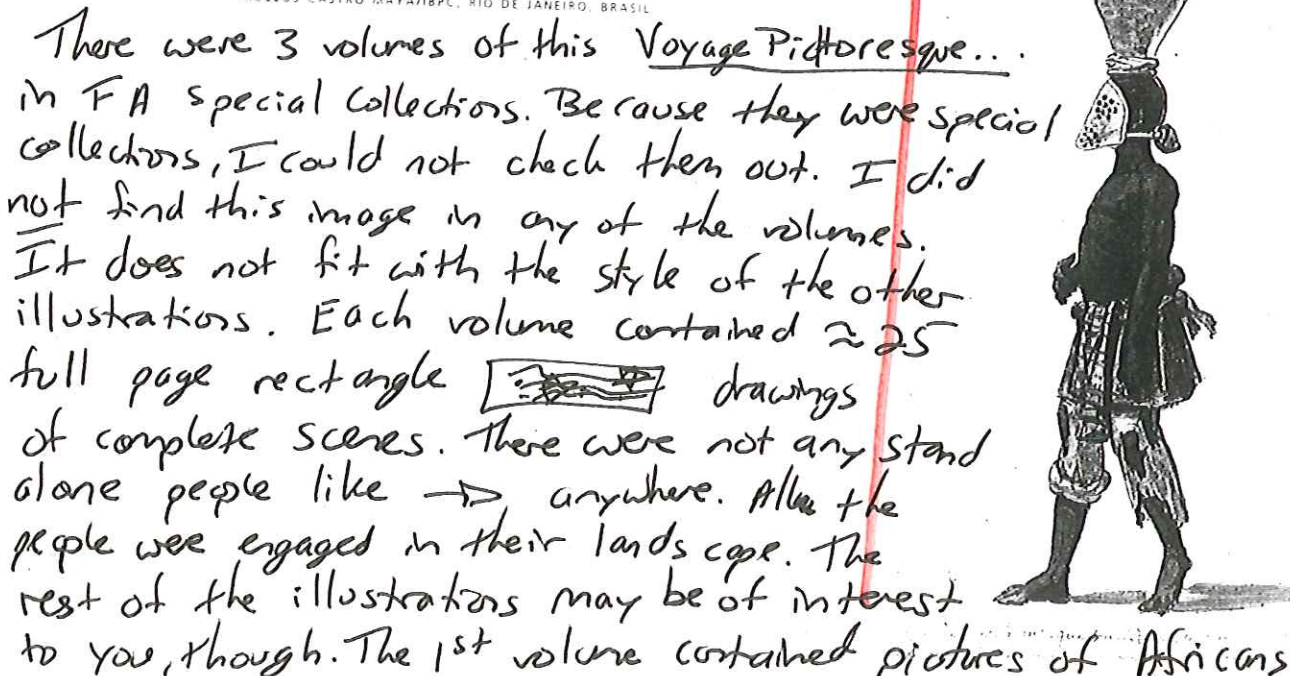 CASTRO MAYA/IBPC, RIO DE JANEIRO, BRASIL
There were 3 volumes of this Voyage Pictoresque...
in FA special collections. Because they were special
collections, I could not check them out. I did
not find this image in any of the volumes.
It does not fit with the style of the other
illustrations. Each volume contained ≈ 25
full page rectangle drawings
of complete scenes. There were not any stand
alone people like → anywhere. All the
people were engaged in their landscape. The
rest of the illustrations may be of interest
to you, though. The 1st volume contained pictures of Africans